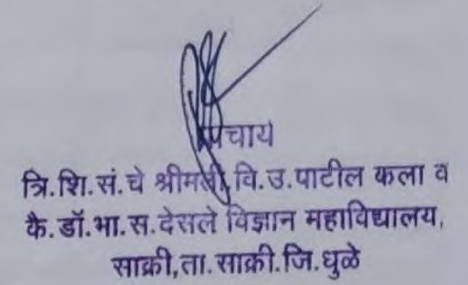 प्राचार्य
त्रि.शि.सं.चे श्रीमती वि.उ.पाटील कला व
कै.डॉ.भा.स.देसले विज्ञान महाविद्यालय,
साक्री,ता.साक्री.जि.धुळे